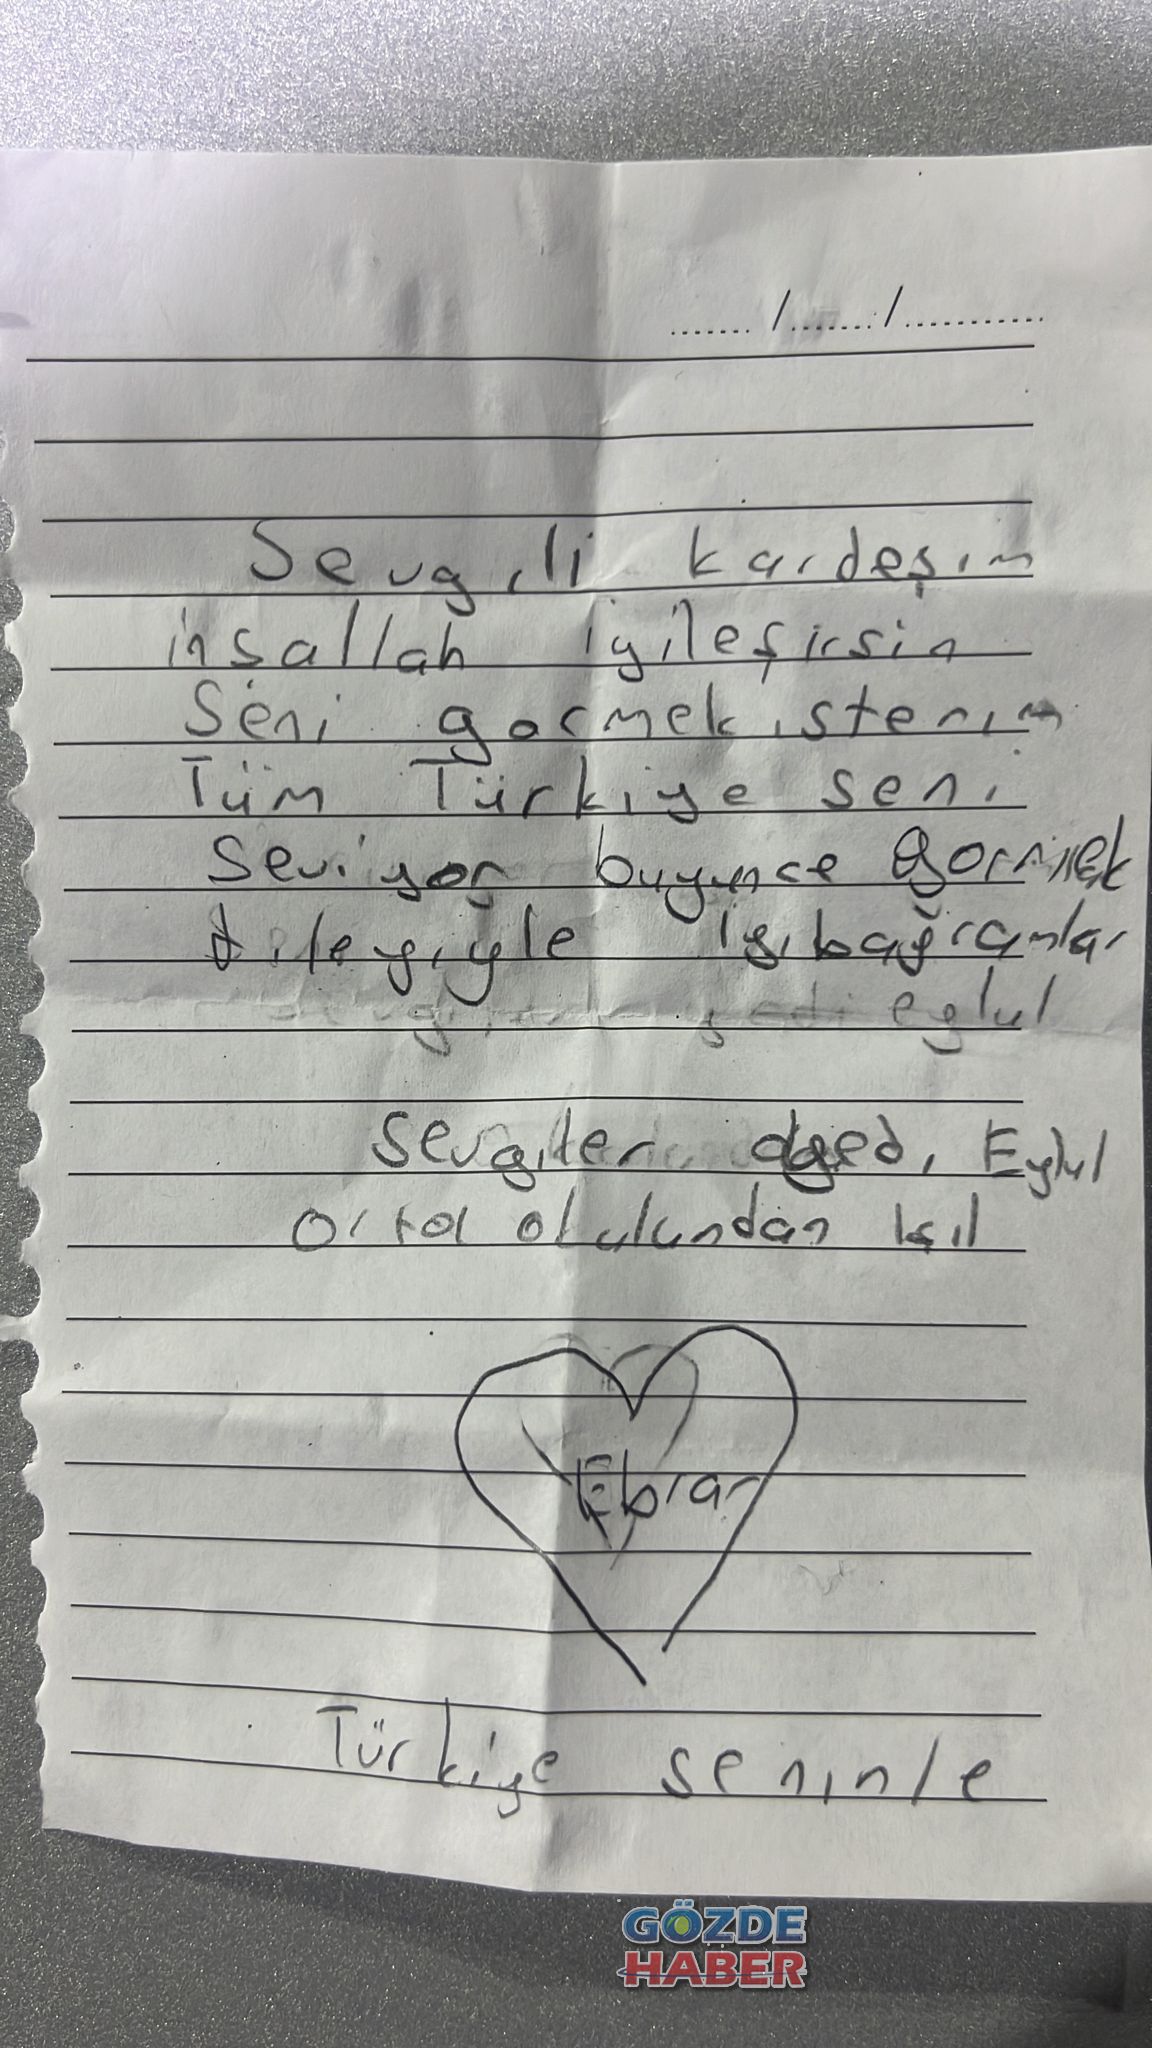 ......./......./............
Sevgili kardeşim
inşallah iyileşirsin
Seni gormek isterim
Tüm Türkiye seni
Seviyor buyunce Gormek
dileyiyle iyi bağramlar
yedi eylul
Sevgiler yedi Eylul
Orta olulundan Işıl
Ebrar
Türkiye seninle
GÖZDE
HABER